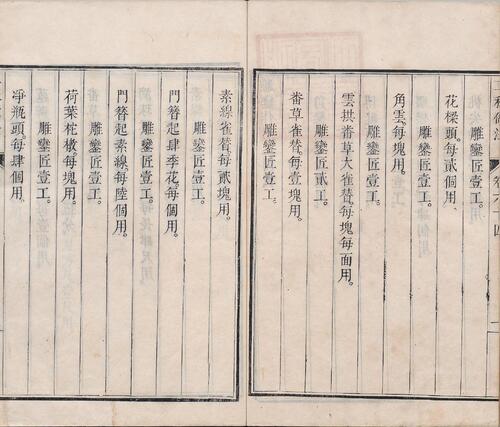 卷六 四
雕鑾匠壹工。
花樑頭每貳個用。
雕鑾匠壹工。
角雲每塊用。
雕鑾匠壹工。
雲拱番草大雀替每塊每面用。
雕鑾匠貳工。
番草雀替每塊用。
雕鑾匠壹工。
素線雀替每貳塊用。
雕鑾匠壹工。
門簪起肆季花每個用。
雕鑾匠壹工。
門簪起素線每陸個用。
雕鑾匠壹工。
荷葉枕墩每塊用。
雕鑾匠壹工。
淨瓶頭每肆個用。